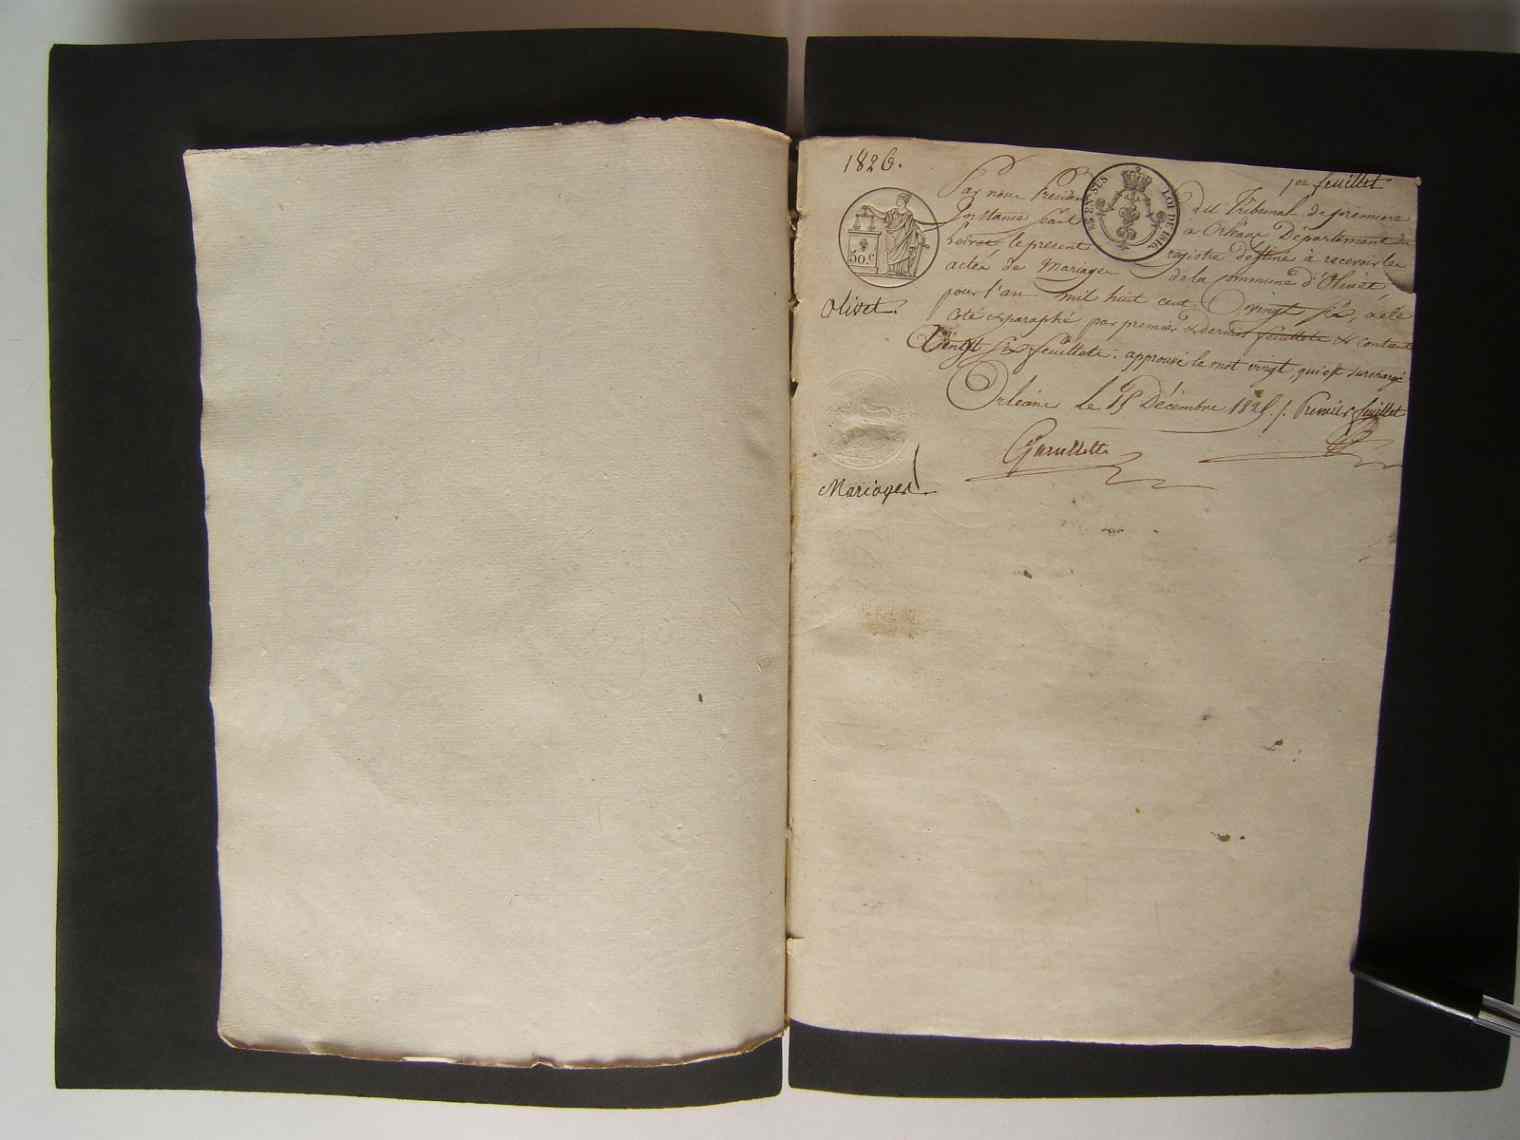 1826.
1er feuillet
Par nous Président du Tribunal de première
Instance séant à Orléans Département du
Loiret, le présent registre destiné à recevoir les
actes de Mariages de la Commune d'Olivet
pour l'an mil huit cent vingt six, a été
Coté et paraphé par premier et dernier feuillets et contient
Vingt six feuillets. approuvé le mot vingt qui est surchargé
Orléans le 15 Décembre 1825. Premier feuillet
50.c
25 EN SUS
LOI DE 1816.
Olivet.
Mariages